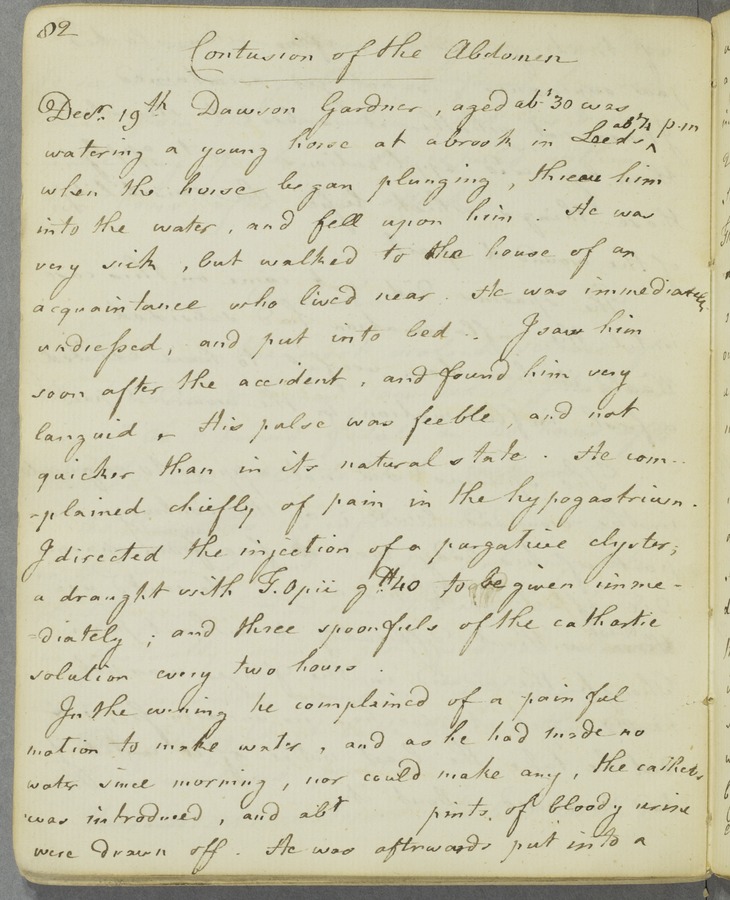 82
Contusion of the Abdomen
Decr. 19th Dawson Gardner, aged abt 30 was
watering a young horse at a brook in Leeds abt 4 p.m
when the horse began plunging, threw him
into the water, and fell upon him. He was
very sick, but walked to the house of an
acquaintance who lived near. He was immediately
undressed, and put into bed.. I saw him
soon after the accident, and found him very
languid. His pulse was feeble, and not
quicker than in its natural state. He com-
-plained chiefly of pain in the hypogastrium.
I directed the injection of a purgative clyster;
a draught with T. Opii gtt 40 to be given imme-
-diately; and three spoonfuls of the cathartic
solution every two hours.
In the evening he complained of a painful
motion to make water, and as he had made no
water since morning, nor could make any, the catheter
was introduced, and abt pints of bloody urine
were drawn off. He was afterwards put into a